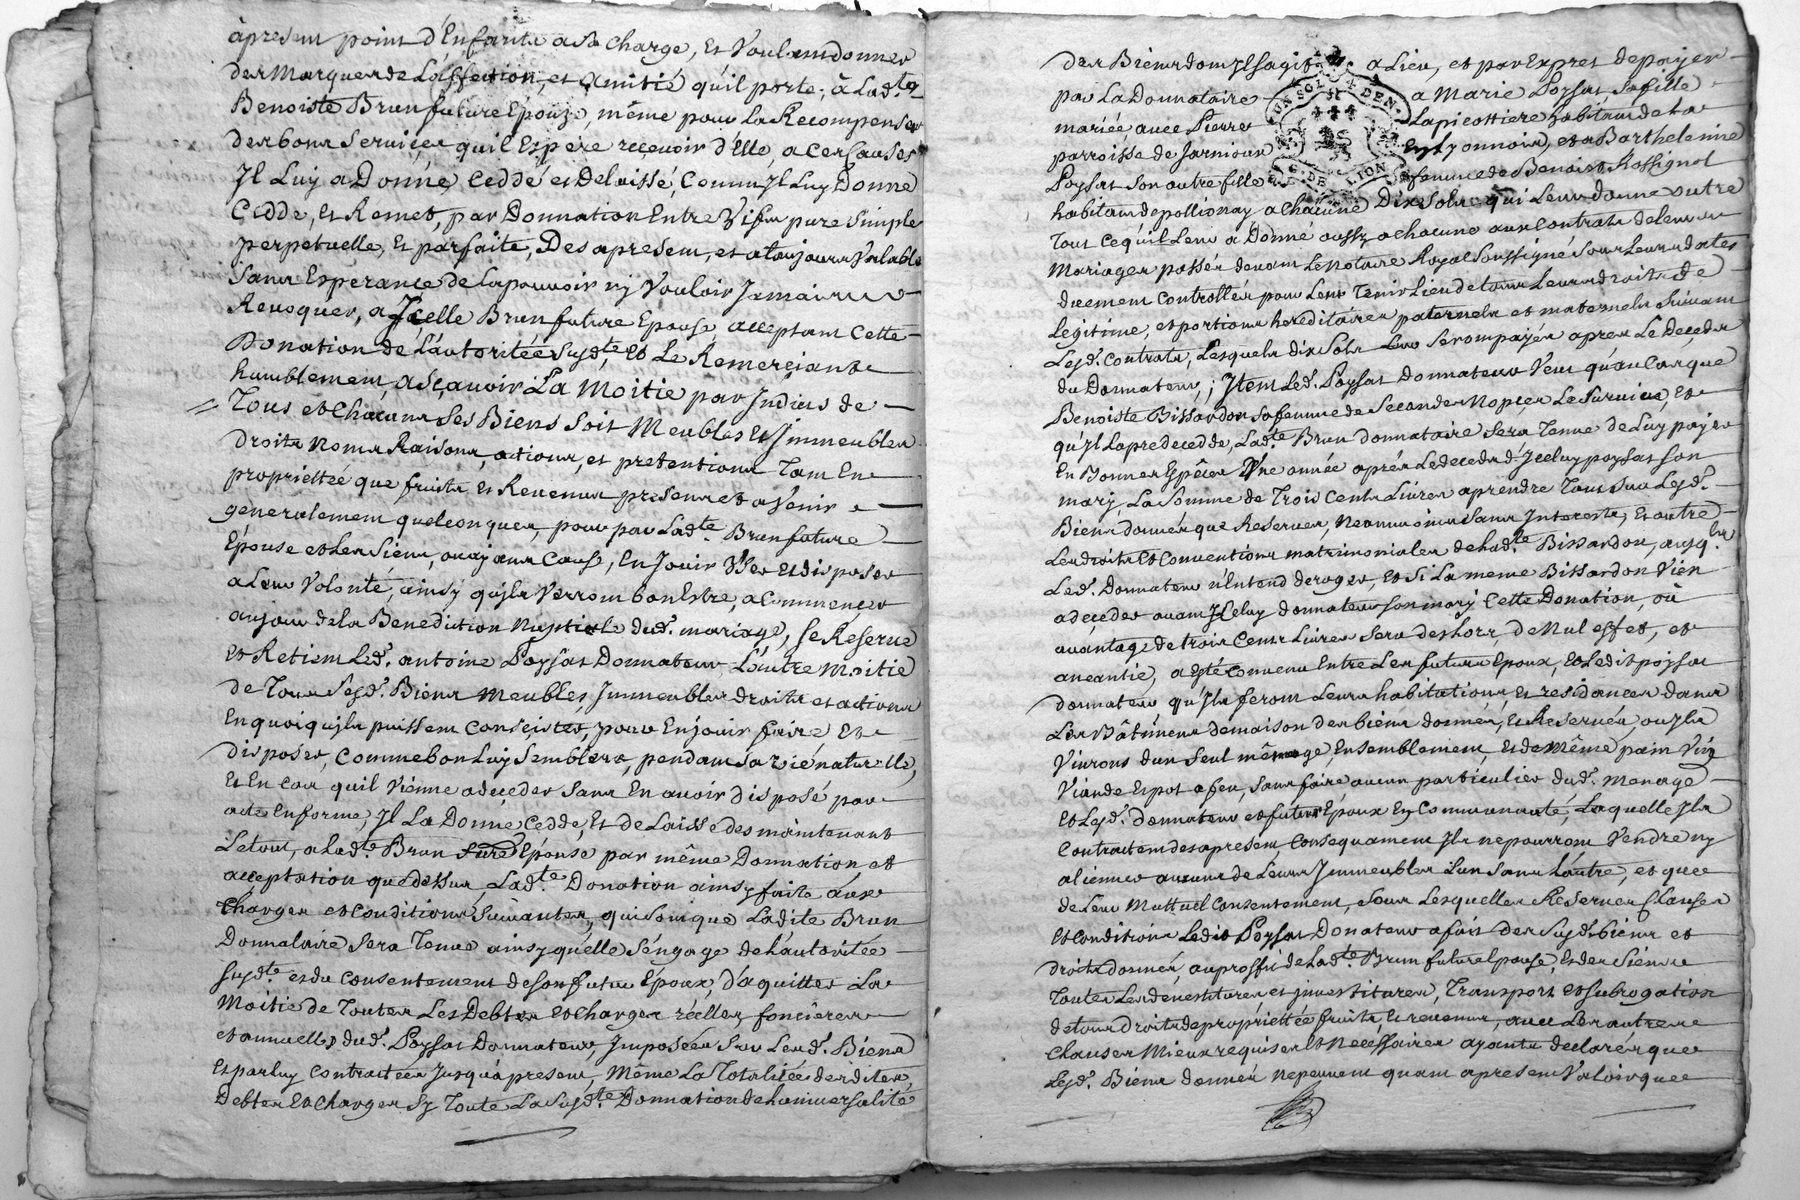 àpresent point d'Enfants a Sa Charge, Et Voulant donner
des Marques de Laffection, et amitié qu'il porte, à Lad.te
Benoiste Brun future Epouze, même pour la Recompenser
des bons Services quil Espere recevoir d'Elle, a ces Causes
Il Luy a Donné, Ceddé et Delaissé, Comm'Il Luy Donne
Cedde, Et Remet, par Donnation Entre Vifs pure Simple
perpetuelle, Et parfaite, Des apresent, et atoujours Valable
Sans Esperance de La pouvoir ny Vouloir Jamais
Revoquer, a Jcelle Brun future Epouse, acceptant Cette
Donation de L'autoritée Susd.te, Et Le Remerciant
humblement, ascavoir La Moitié par Indivis de
Tous et Chacuns Ses Biens Soit Meubles Et Jmmeubles
droits noms Raisons, actions, et pretentions Tant En
propriettée que fruits Et Revenus presents et a Venir
generalement quelconques, pour par Lad.te Brun future
Épouse et Les Siens, ou ayans Cause, En Jouir User et disposer
a Leur Volonté, ainsy qu'jls Verront bon Estre, a Commencer
aujour de la Benediction Nuptiale dud. mariage, Se Reserve
et Retient Led. antoine Poysat Donnateur L'autre Moitié
de Tous Sesd. Biens Meubles, Jmmeubles droits et actions
En quoi qu'jls puissent Consister, pour En Jouir faire Et
disposer, Comme bon Luy Semblera, pendant Sa vie naturelle,
Et En Cas quil Vienne adeceder Sans En avoir disposé par
acte En forme, Jl La Donne, Cedde, Et de Laisse des maintenant
Le tout, a Lad.te Brun future Epouse par même Donnation et
acceptation que dessus, Lad.te Donation ainsy faite aux
Charges et Conditions Suivantes, qui Sont que Ladite Brun
Donnataire Sera Tenue ainsy qu'elle S'engage de l'autoritée
Susd.te et du Consentement de Son futur Époux, d'aquitter La
Moitié de Toutes Les Debtes et Charges réelles, foncieres
et annuelles dud. Poysat Donnateur, Imposées Sur Lesd. Biens
Et par Luy Contractées Jusqu'apresent, Même La Totalitée desdites
Debtes Et Charges Sy Toute La Susd.te Donnation de Luniversalité
des Biens dont Jl Sagit a Lieu, et par Expres de payer
par La Donnataire a Marie Poysat Sa fille
mariée avec Pierre Lapicottiere habitant de La
parroisse de Jarnioux En Lyonnois, et a Barthelemie
Poysat Son autre fille femme de Benoist Rossignol
habitant de pollionay a Chacune Dix Sols qui Leur donne outre
Tout Cequ'il Leur a Donné aussy a Chacune aux Contrats de Leur
Mariages passés devant Le Notaire Royal Soussigné Sous Leurs dates
duement Controllés pour Leur Tenir Lieu de tous Leurs droits de
Legitime, et portions hereditaires paternels et maternels Suivant
Lesd. Contrats, Lesquels dix Sols Leur Seront payés apres Le Deceds
du Donnateur, ; Jtem Led. Poysat Donnateur Veut qu'au Cas que
Benoiste Bissardon Sa femme de Secondes Nopces Le Survive, Et
qu'Jl La predecedde, Lad.te Brun donnataire Sera Tenue de Luy payer
En Bonnes Espêces Une année aprés Le deceds d'Jceluy poysat Son
mary La Somme de Trois Cents Livres a prendre Tant Sur Lesd.
Biens donnés que Reservés, Neanmoins Sans Interests, Et outre
Les droits Et Conventions matrimoniales de Lad.te Bissardon, ausq.ls
Led. Donnateur n'Entend deroger, Et Si La meme Bissardon Vien
adeceder avant Jceluy donnateur Son mary Cette Donation, où
avantage de trois Cents Livres Sera des Lors de Nul effet, et
aneantie, a Eté Convenu Entre Les futurs Epoux, Et Ledit poysat
donnateur qu'Jls feront Leurs habitations, Et residances dans
Les Bâtiments de maison des biens donnés, Et Reservés, ou Jls
Vivrons d'un Seul même menage, Ensemblement, Et de même pain Vin
Viande Et pot a feu, Sans faire aucun particulier dud. Menage
Et Lesd. donnateur et futurs Epoux En Communauté, Laquelle Jls
Contractent des apresent, Consequament Jls ne pourront Vendre ny
aliennér aucuns de Leurs Jmmeubles L'un Sans L'autre, et que
de Leur Muttuel Consentement, Sous Lesquelles Reserves Clauses
et Conditions Ledit Poysat Donateur a fait des Susd. biens et
droits donnés, au proffit de Lad.te Brun future Epouse, Et des Siens
Toutes Les devestitures et jnvestitures, Transport et Subrogation
de tous droits de propriettée fruits, Et revenus, avec Les autres
Clauses Mieux requises Et Necessaires ayants declarés que
Lesd. Biens donnés ne peuvent quant apresent Valoir que
UN SOL 4 DEN.
G. DE LION